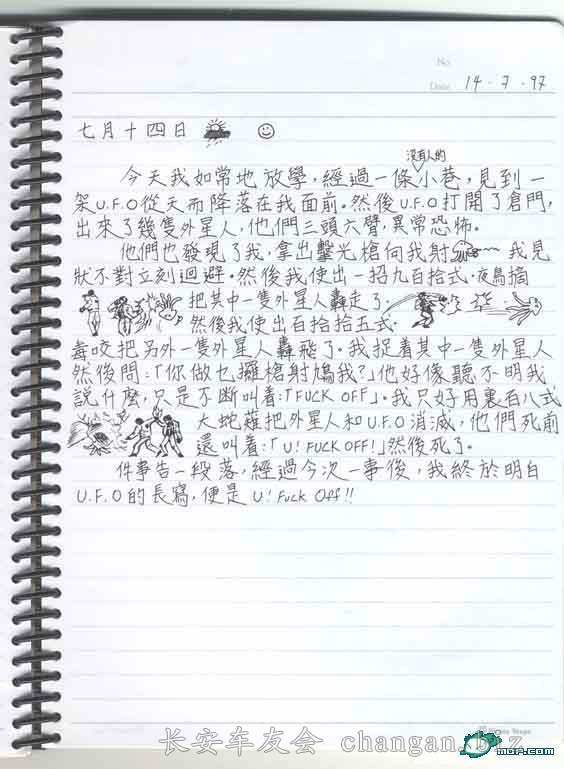 No.
Date 14・7・97
七月十四日
沒有人的
今天我如常地放學，經過一條小巷，見到一
架U.F.O從天而降落在我面前。然後U.F.O打開了倉門，
出來了幾隻外星人，他們三頭六臂，異常恐怖。
他們也發現了我，拿出擊光槍向我射 我見
狀不對立刻迴避。然後我使出一招九百拾式·夜鳥摘
把其中一隻外星人轟走了。
然後我使出百拾拾五式·
毒咬把另外一隻外星人轟飛了。我捉着其中一隻外星人
然後問：「你做乜攞槍射鳩我？」他好像聽不明我
說什麼，只是不斷叫着：「FUCK OFF」。我只好用裏百八式
大蛇薙把外星人和U.F.O消滅，他們死前
還叫着：「U! FUCK OFF!」然後死了。
件事告一段落，經過今次一事後，我終於明白
U.F.O的長寫，便是U! Fuck Off!!
长安车友会 changan.biz
mop.com